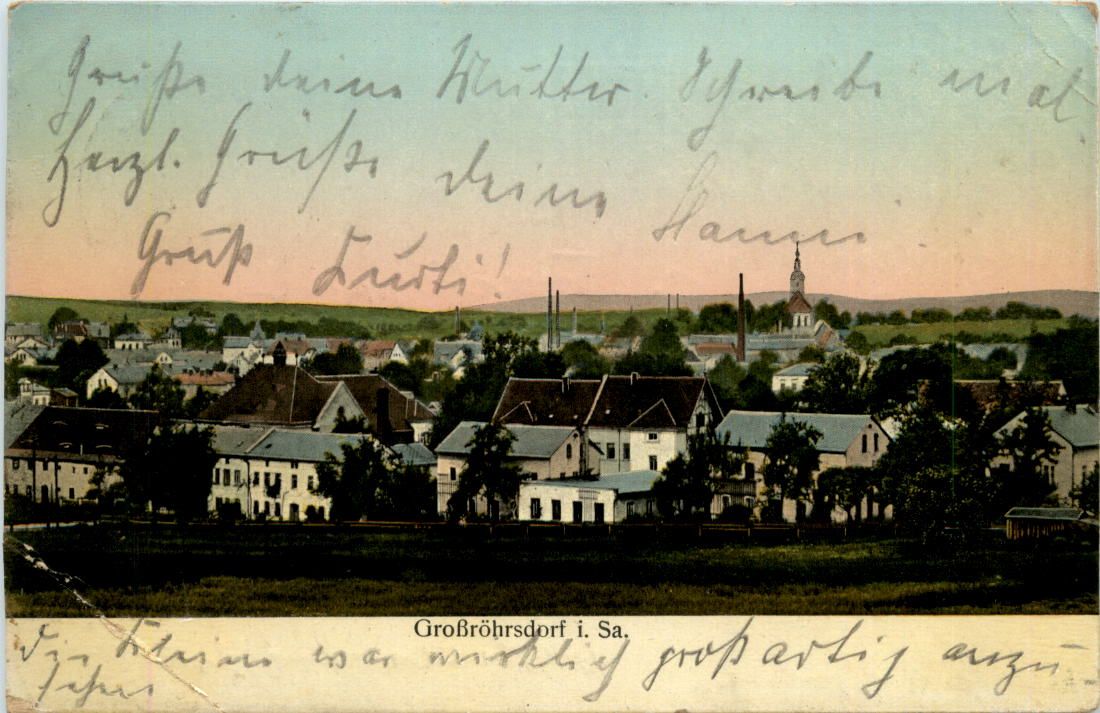 Grüße deine Mutter. Schreibe mal
Herzl. Grüße deine Hanni
Gruß Kurti!
Großröhrsdorf i. Sa.
die Kleine war wirklich großartig anzu-
sehen